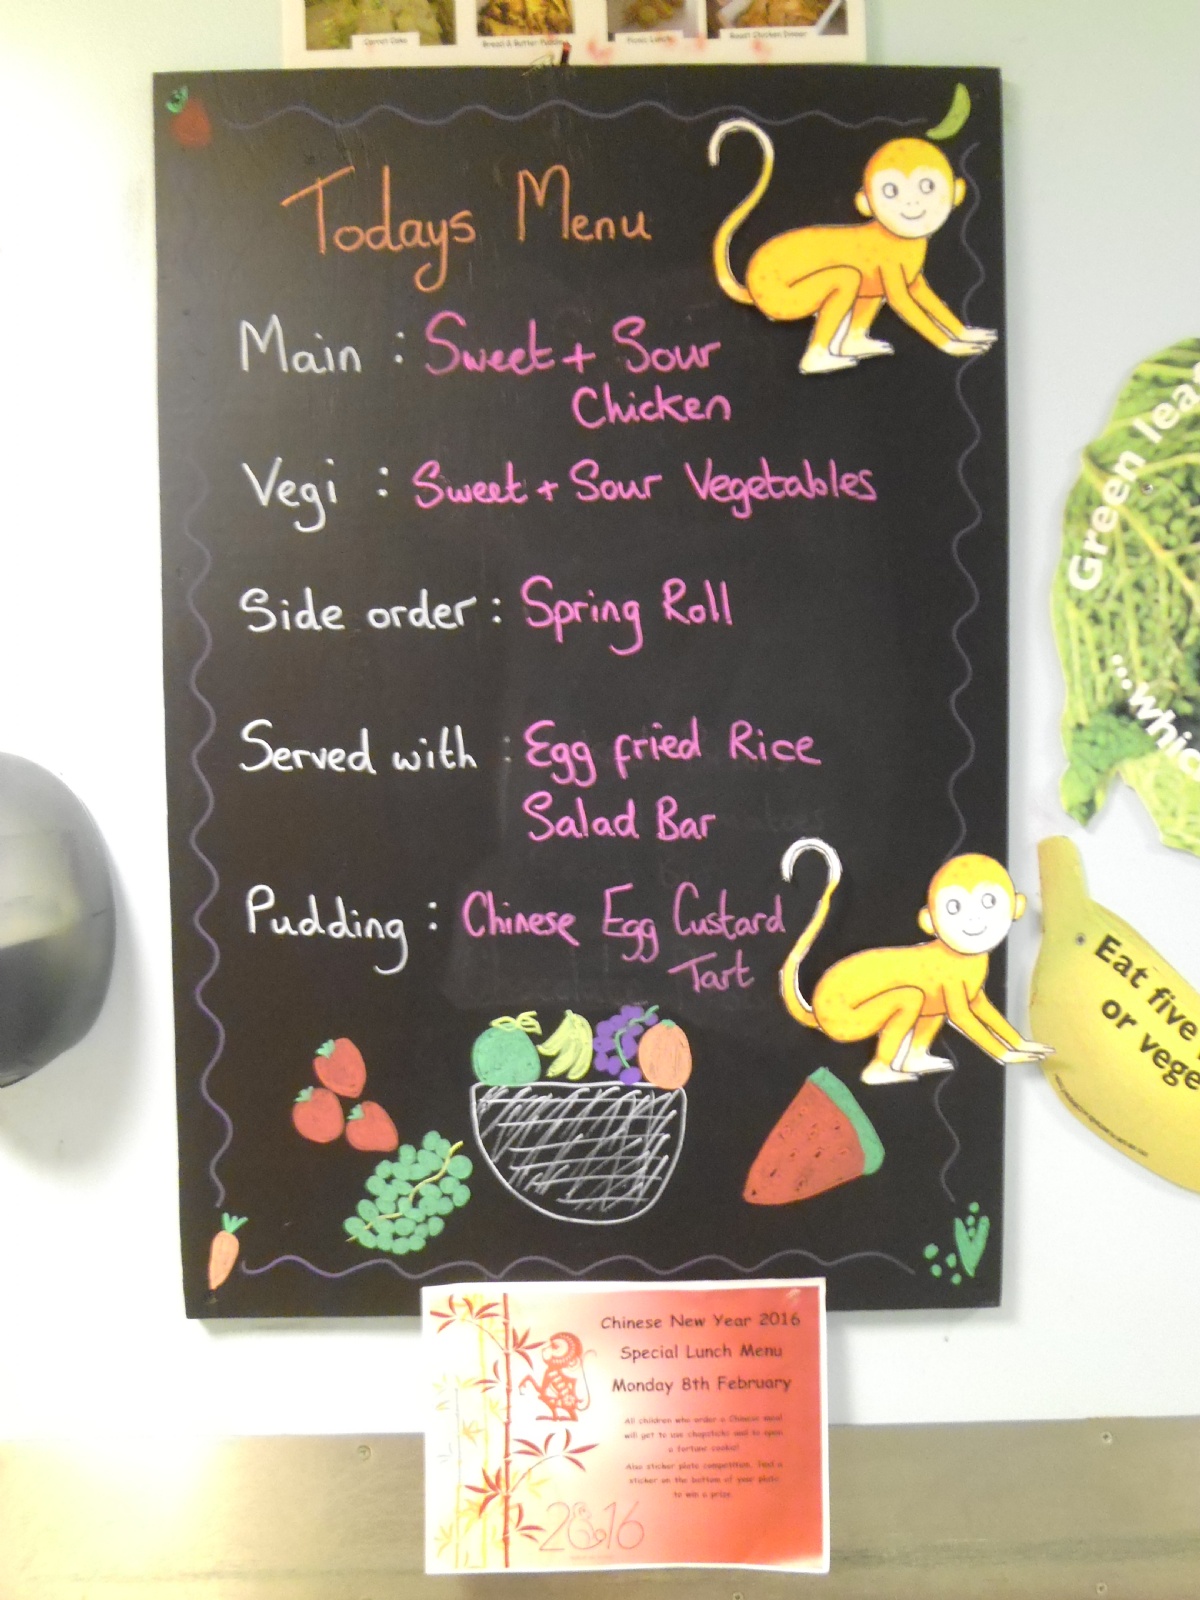 Carrot Cake
Bread & Butter Pudding
Picnic Lunch
Roast Chicken Dinner
Todays Menu
Main : Sweet + Sour
Chicken
Vegi : Sweet + Sour Vegetables
Side order : Spring Roll
Served with : Egg fried Rice
Salad Bar
Pudding : Chinese Egg Custard
Tart
Green lea
...whic
Eat five
or vege
Chinese New Year 2016
Special Lunch Menu
Monday 8th February
All children who order a Chinese meal
will get to use chopsticks and to open
a fortune cookie!
Also sticker plate competition. Find a
sticker on the bottom of your plate
to win a prize.
2016